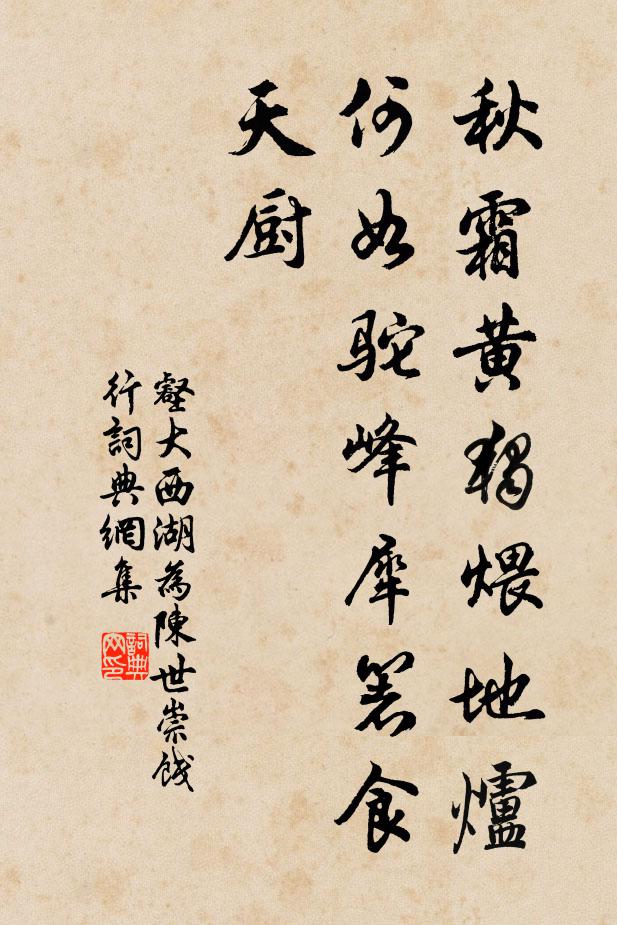 秋霜黄獨煨地爐
何如駝峰犀箸食
天厨
壑大西湖為陳世崇餞
行詞典網集
詞典網印